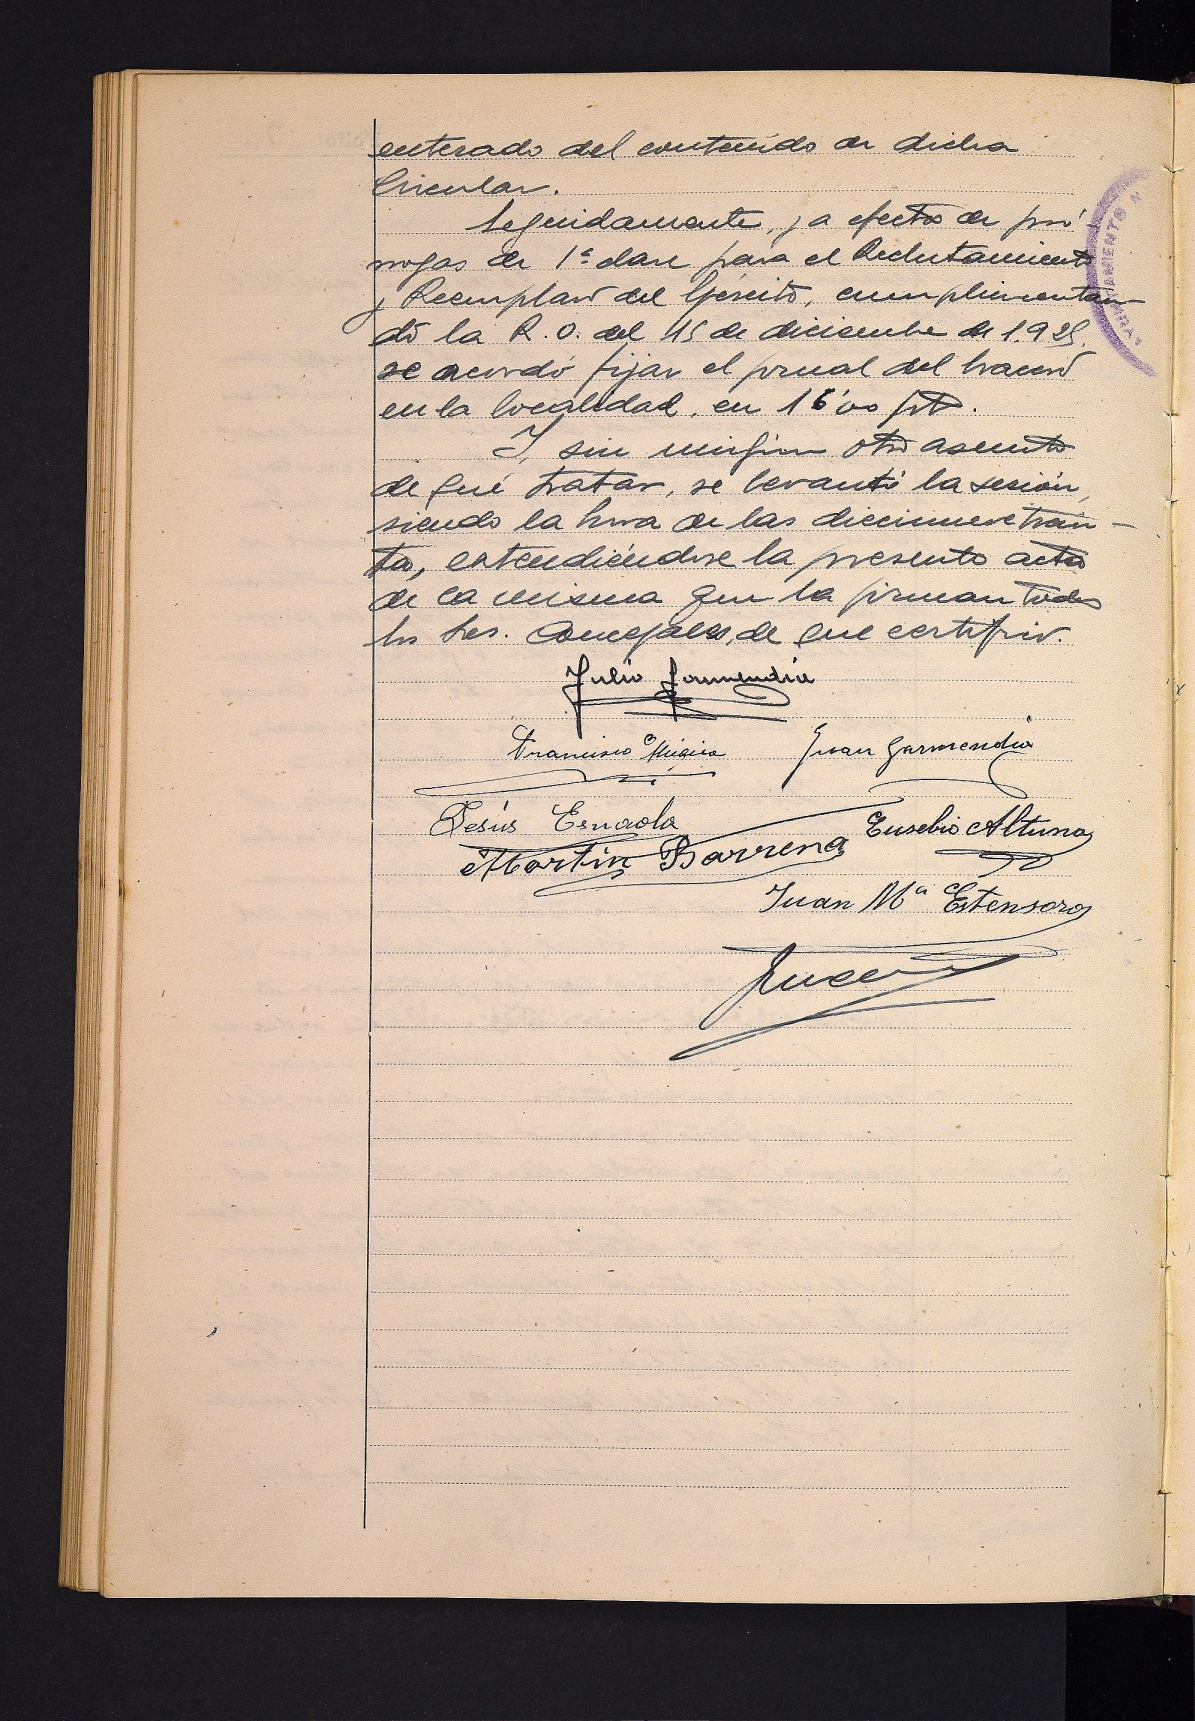 enterado del contenido de dicha
Circular.
Seguidamente, y a efectos de pró-
rrogas de 1ª clase para el Reclutamiento
y Reemplazo del Ejército, cumplimentan-
do la R. O. del 15 de diciembre de 1.925,
se acordó fijar el jornal del bracero
en la localidad, en 16'00 pts.
Y, sin ningún otro asunto
de qué tratar, se levantó la sesión,
siendo la hora de las diecinueve trein-
ta, extendiéndose la presente acta
de la misma que la firman todos
los Sres. Concejales, de que certifico.
Julio Garmendia
Francisco Múgica Juan Garmendia
Jesús Esnaola Eusebio Altuna
Martín Barrena
Juan Mª Estensoro
AYUNTAMIENTO